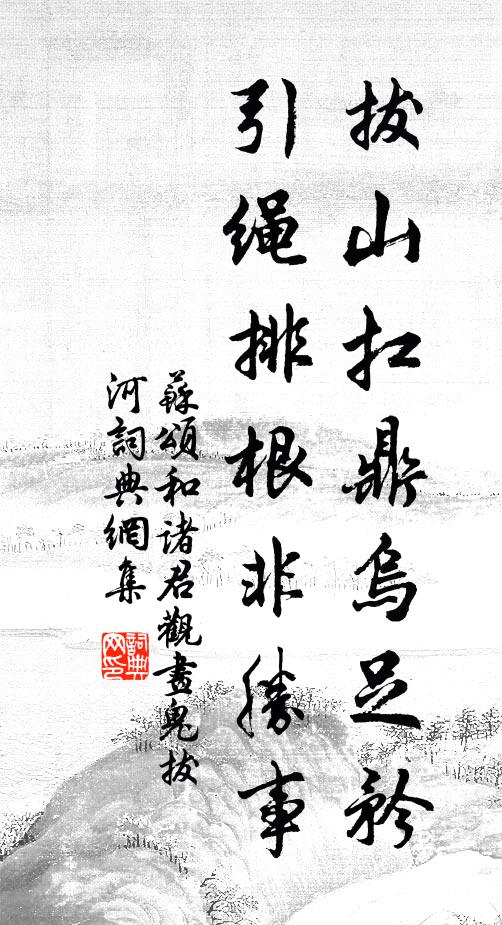 拔山扛鼎烏足矜
引绳排根非勝事
蘇頌和诸君觀畫鬼拔
河詞典網集
詞典
网印